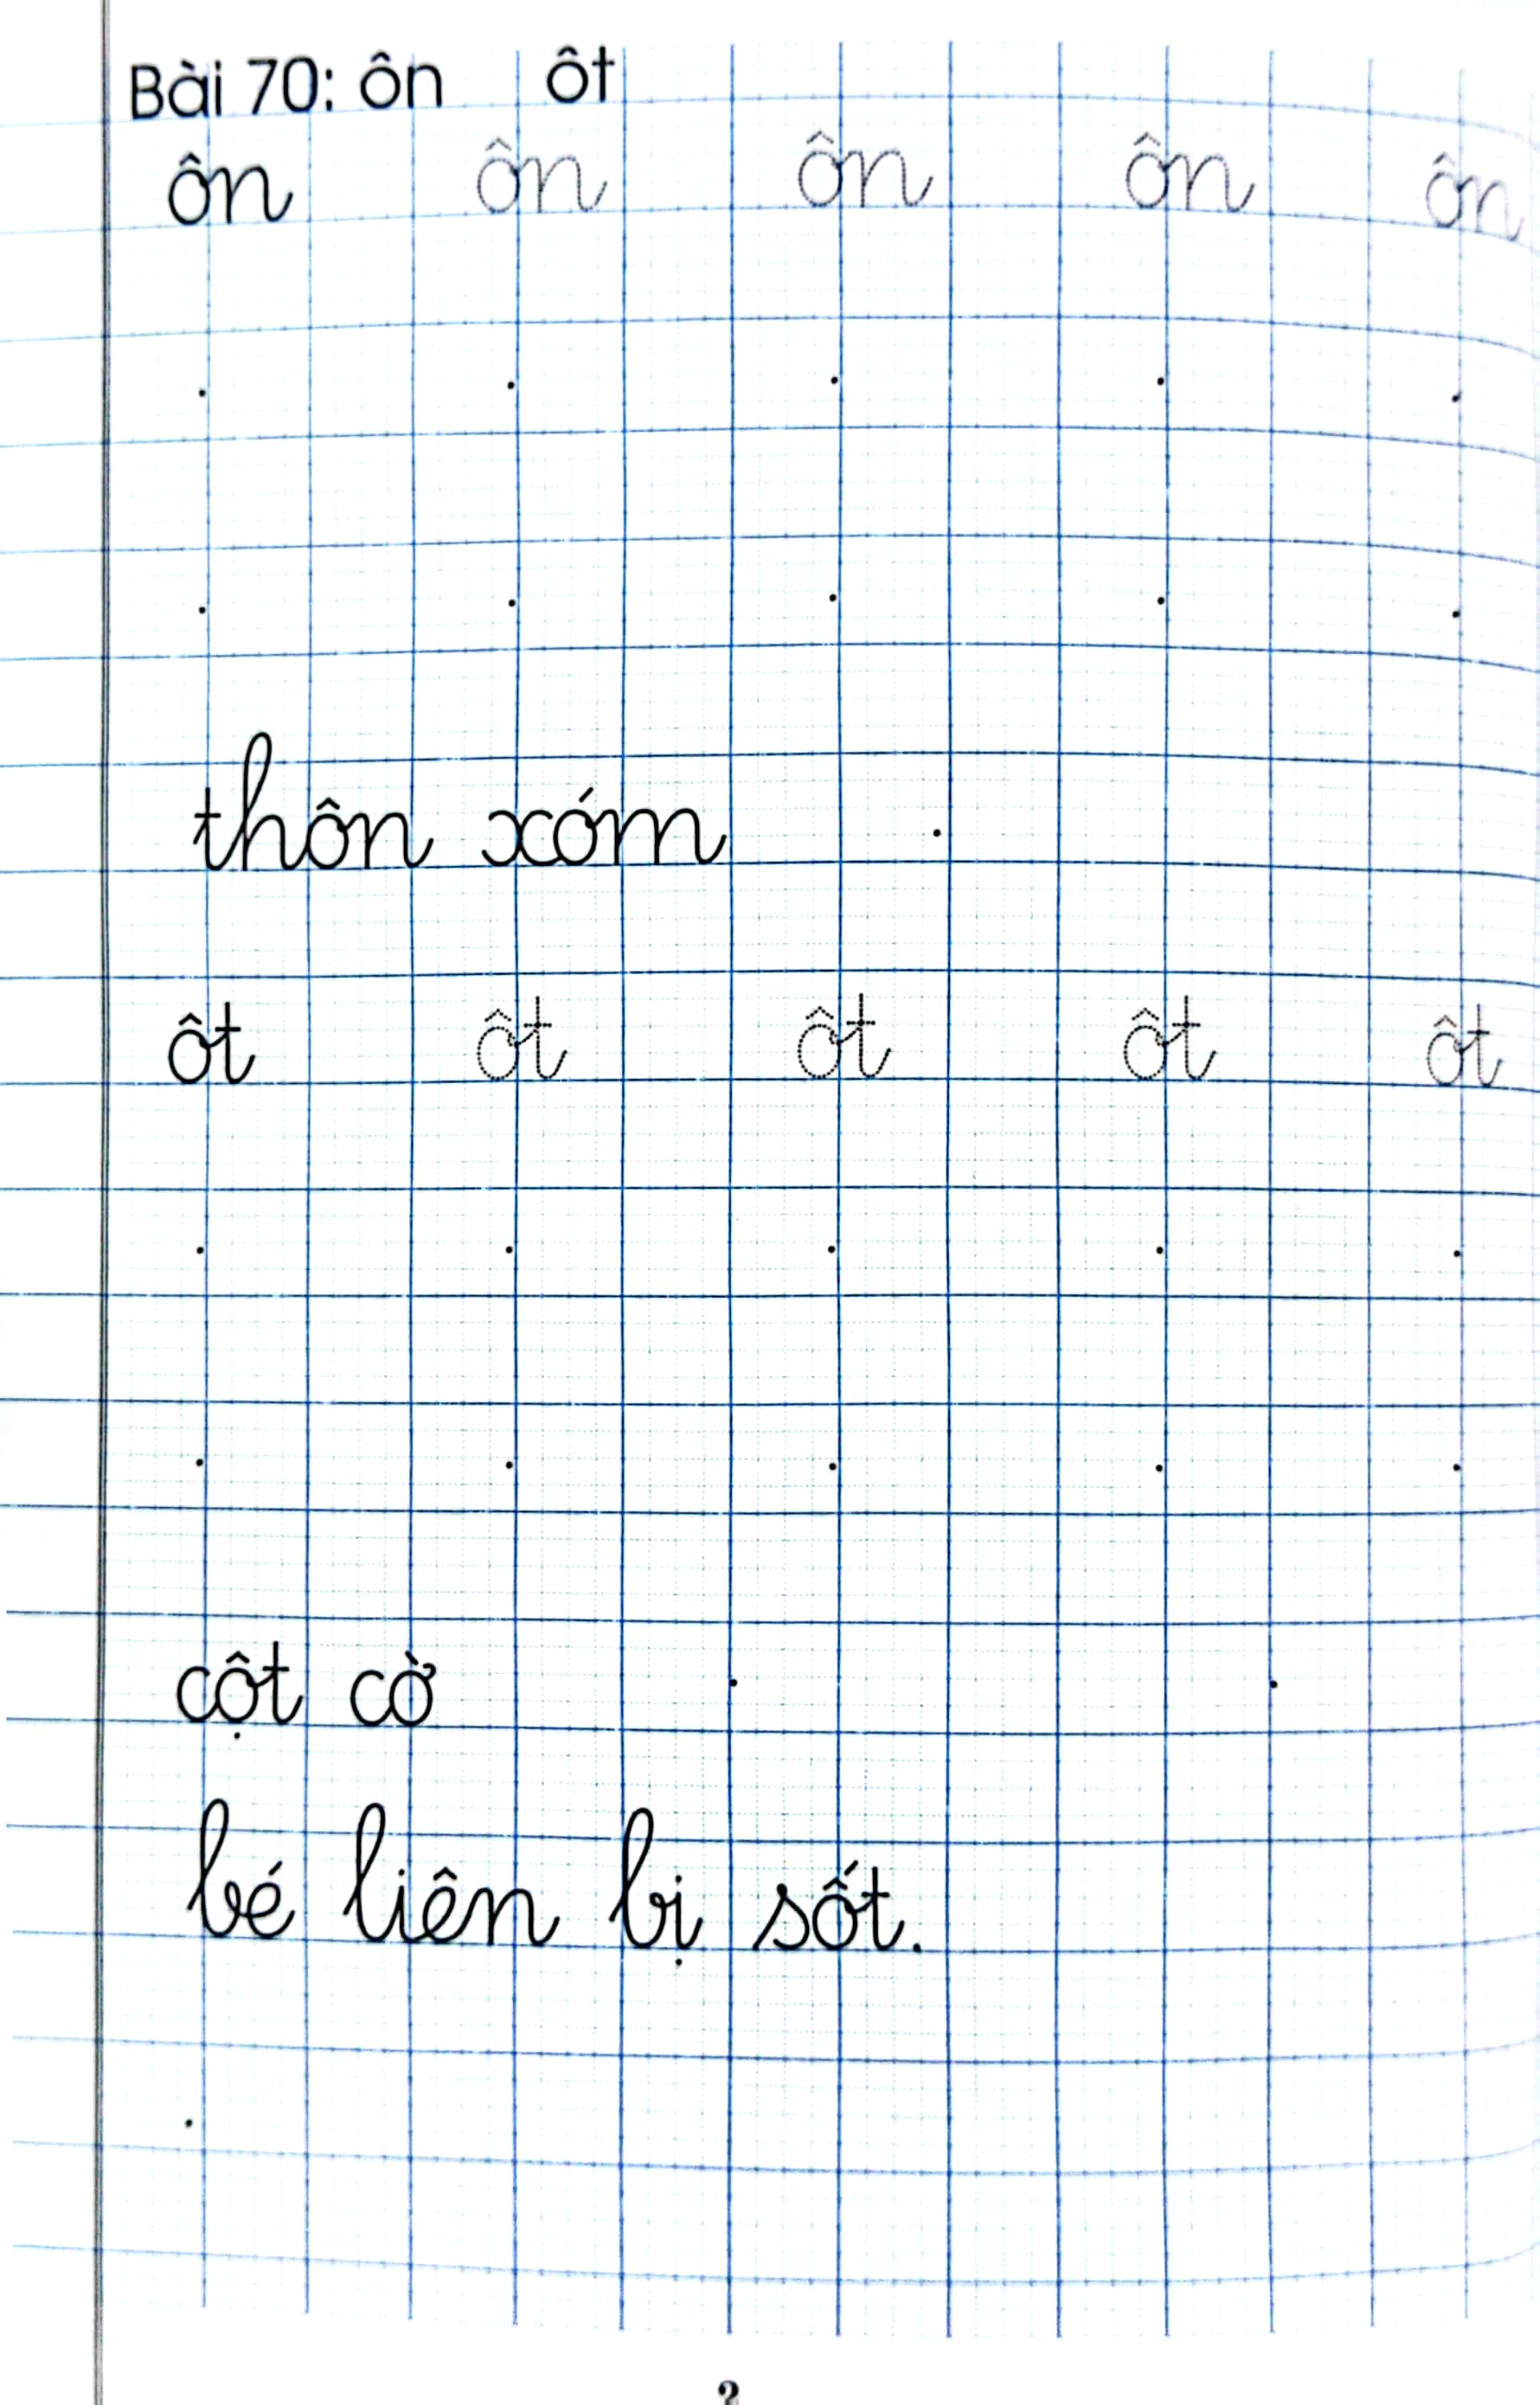 Bài 70: ôn ôt
ôn ôn ôn ôn ôn
thôn xóm
ôt ôt ôt ôt ôt
cột cờ
bé liên bị sốt.